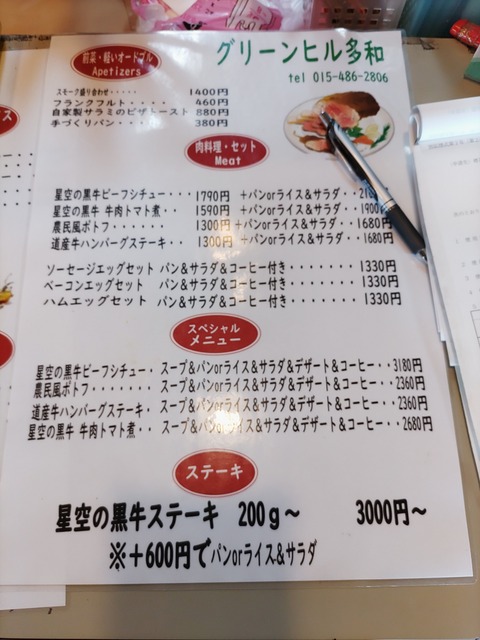 グリーンヒル多和
tel 015-486-2806
前菜・軽いオードブル
Apetizers
スモーク盛り合わせ・・・・・ 1400円
フランクフルト・・・・ 460円
自家製サラミのピザトースト 880円
手づくりパン・・・・ 380円
肉料理・セット
Meat
星空の黒牛ビーフシチュー・・・1790円 +パンorライス&サラダ・・
星空の黒牛 牛肉トマト煮・・1590円 +パンorライス&サラダ・・1900
農民風ポトフ・・・・・・・1300円+パンorライス&サラダ・・1680円
道産牛ハンバーグステーキ・・1300円+パンorライス&サラダ・・1680円
ソーセージエッグセット パン&サラダ&コーヒー付き・・・・・・・1330円
ベーコンエッグセット パン&サラダ&コーヒー付き・・・・・・・1330円
ハムエッグセット パン&サラダ&コーヒー付き・・・・・・・1330円
スペシャル
メニュー
星空の黒牛ビーフシチュー・スープ&パンorライス&サラダ&デザート&コーヒー・・3180円
農民風ポトフ・・・・・・スープ&パンorライス&サラダ&デザート&コーヒー・・2360円
道産牛ハンバーグステーキ・スープ&パンorライス&サラダ&デザート&コーヒー・・2360円
星空の黒牛 牛肉トマト煮・・スープ&パンorライス&サラダ&デザート&コーヒー・・2680円
ステーキ
星空の黒牛ステーキ 200g~ 3000円~
※+600円でパンorライス&サラダ